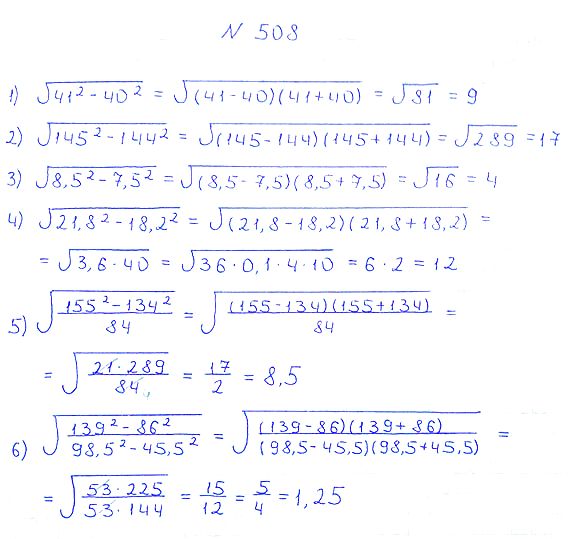 N 508
1) √(41² - 40²) = √((41-40)(41+40)) = √81 = 9
2) √(145² - 144²) = √((145-144)(145+144)) = √289 = 17
3) √(8,5² - 7,5²) = √((8,5-7,5)(8,5+7,5)) = √16 = 4
4) √(21,8² - 18,2²) = √((21,8-18,2)(21,8+18,2)) =
= √(3,6·40) = √(36·0,1·4·10) = 6·2 = 12
5) √((155² - 134²)/84) = √((155-134)(155+134)/84) =
= √(21·289/84) = 17/2 = 8,5
6) √((139² - 86²)/(98,5² - 45,5²)) = √((139-86)(139+86)/((98,5-45,5)(98,5+45,5))) =
= √(53·225/(53·144)) = 15/12 = 5/4 = 1,25